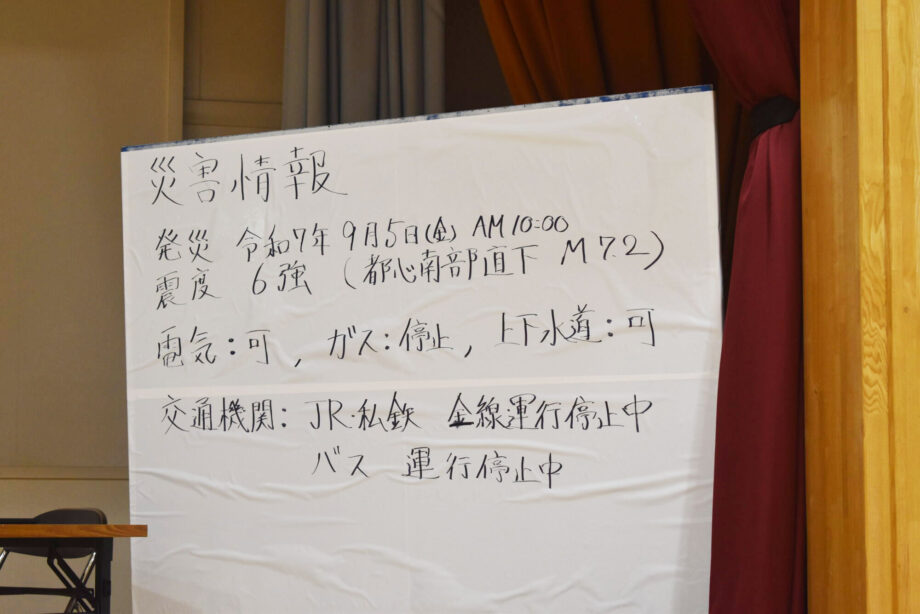 災害情報
発災 令和7年9月5日(金) AM10:00
震度 6強 (都心南部直下 M7.2)
電気:可, ガス:停止, 上下水道:可
交通機関: JR・私鉄 全線運行停止中
バス 運行停止中